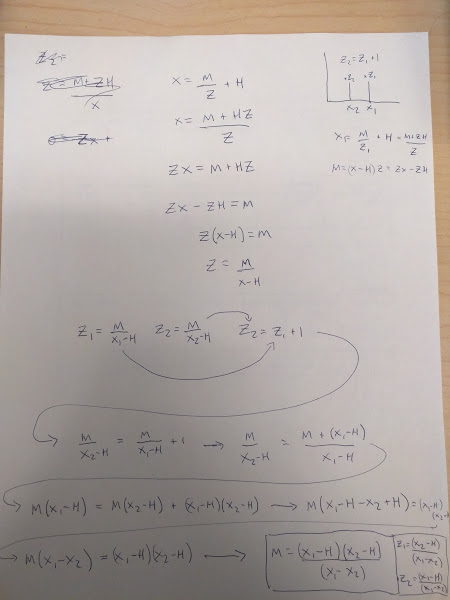 Z₂ =
x = M/Z + H
x = (M + HZ)/Z
Zx = M + HZ
Zx - ZH = M
Z(x-H) = M
Z = M/(x-H)
Z₂ = Z₁ + 1
+Z₂ +Z₁
x₂ x₁
x₁ = M/Z₁ + H = (M+ZH)/Z
M = (x-H)Z = Zx - ZH
Z₁ = M/(x₁-H) Z₂ = M/(x₂-H) Z₂ = Z₁ + 1
M/(x₂-H) = M/(x₁-H) + 1 → M/(x₂-H) = (M + (x₁-H))/(x₁-H)
M(x₁-H) = M(x₂-H) + (x₁-H)(x₂-H) → M(x₁-H-x₂+H) = (x₁-H)(x₂-H)
M(x₁-x₂) = (x₁-H)(x₂-H) → M = (x₁-H)(x₂-H)/(x₁-x₂)
Z₁ = (x₂-H)/(x₁-x₂)
Z₂ = (x₁-H)/(x₁-x₂)